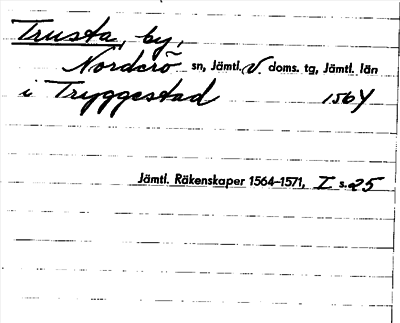 Trusta, by,
Norderö sn, Jämtl. V. doms. tg, Jämtl. län
i Tryggestad 1564
Jämtl. Räkenskaper 1564–1571, I s. 25